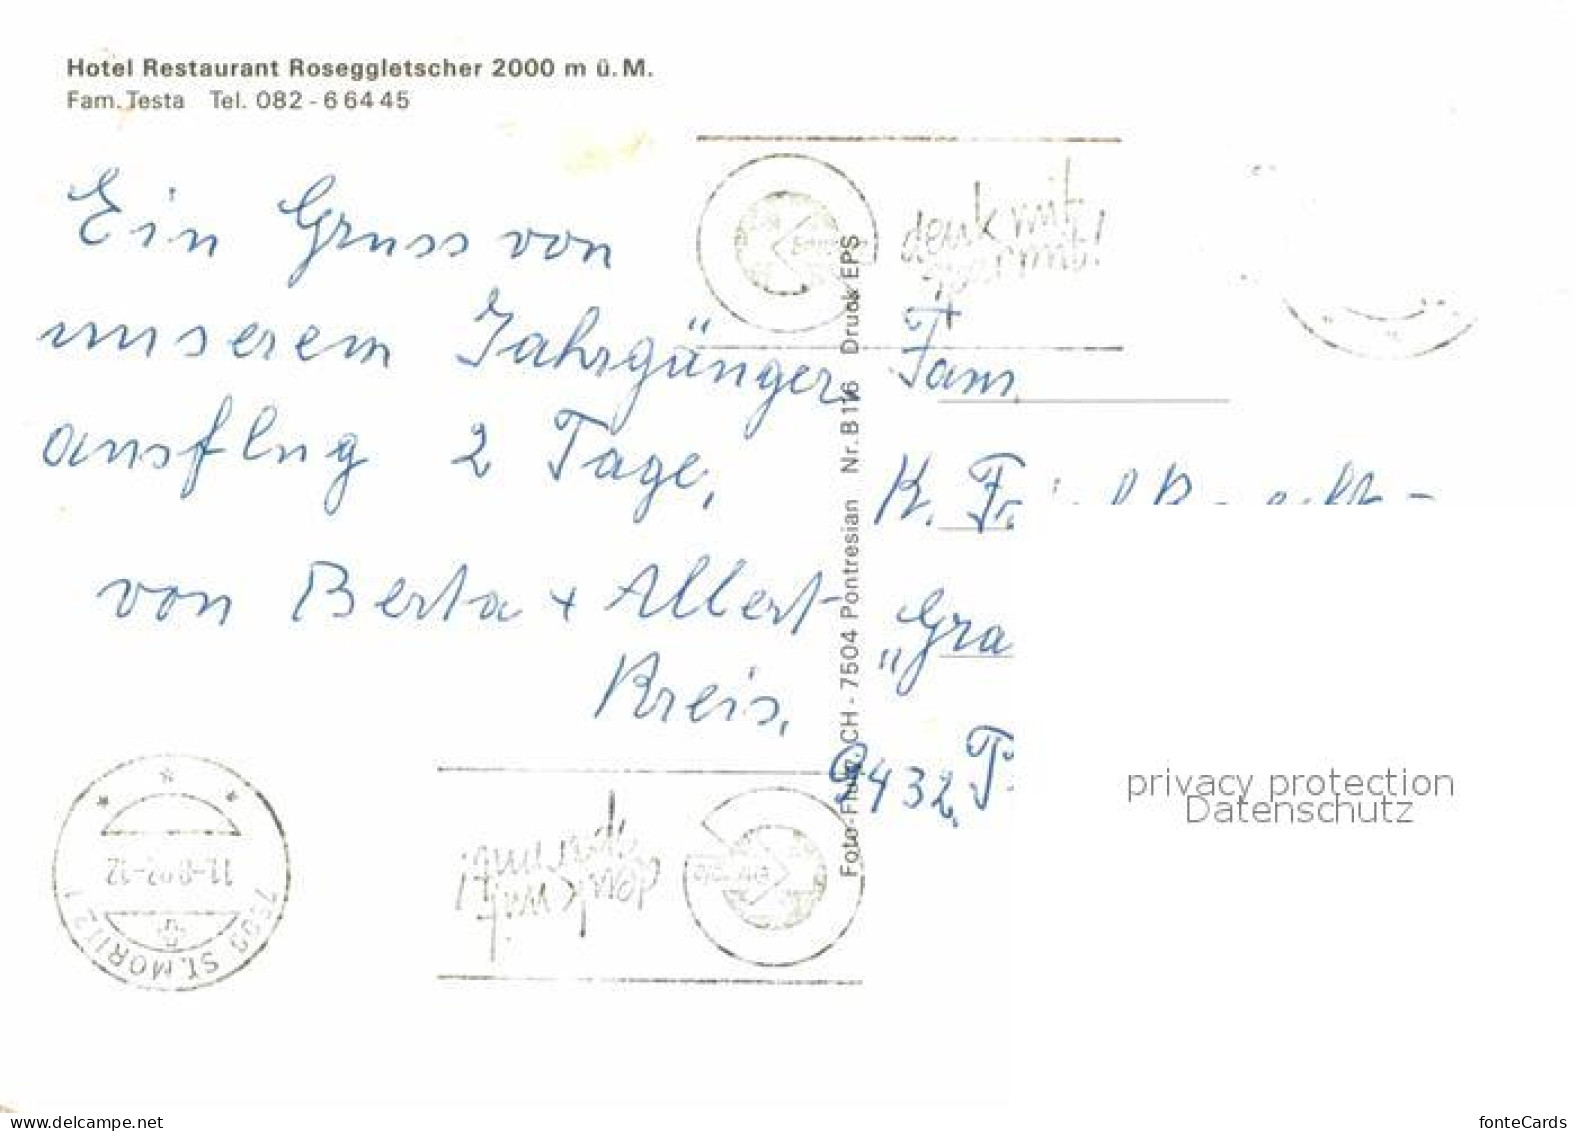 Hotel Restaurant Roseggletscher 2000 m ü. M.
Fam. Testa Tel. 082 - 6 64 45
Ein Gruss von
unserem Jahrgänger
ausflug 2 Tage,
von Berta + Albert
Kreis,
denk mit
Fam
K. Fr
"Gra
9432
Foto-Flury, CH - 7504 Pontresian Nr. B 116 Druck EPS
7500 ST. MORITZ 1
denk mit
privacy protection
Datenschutz
www.delcampe.net
fonteCards